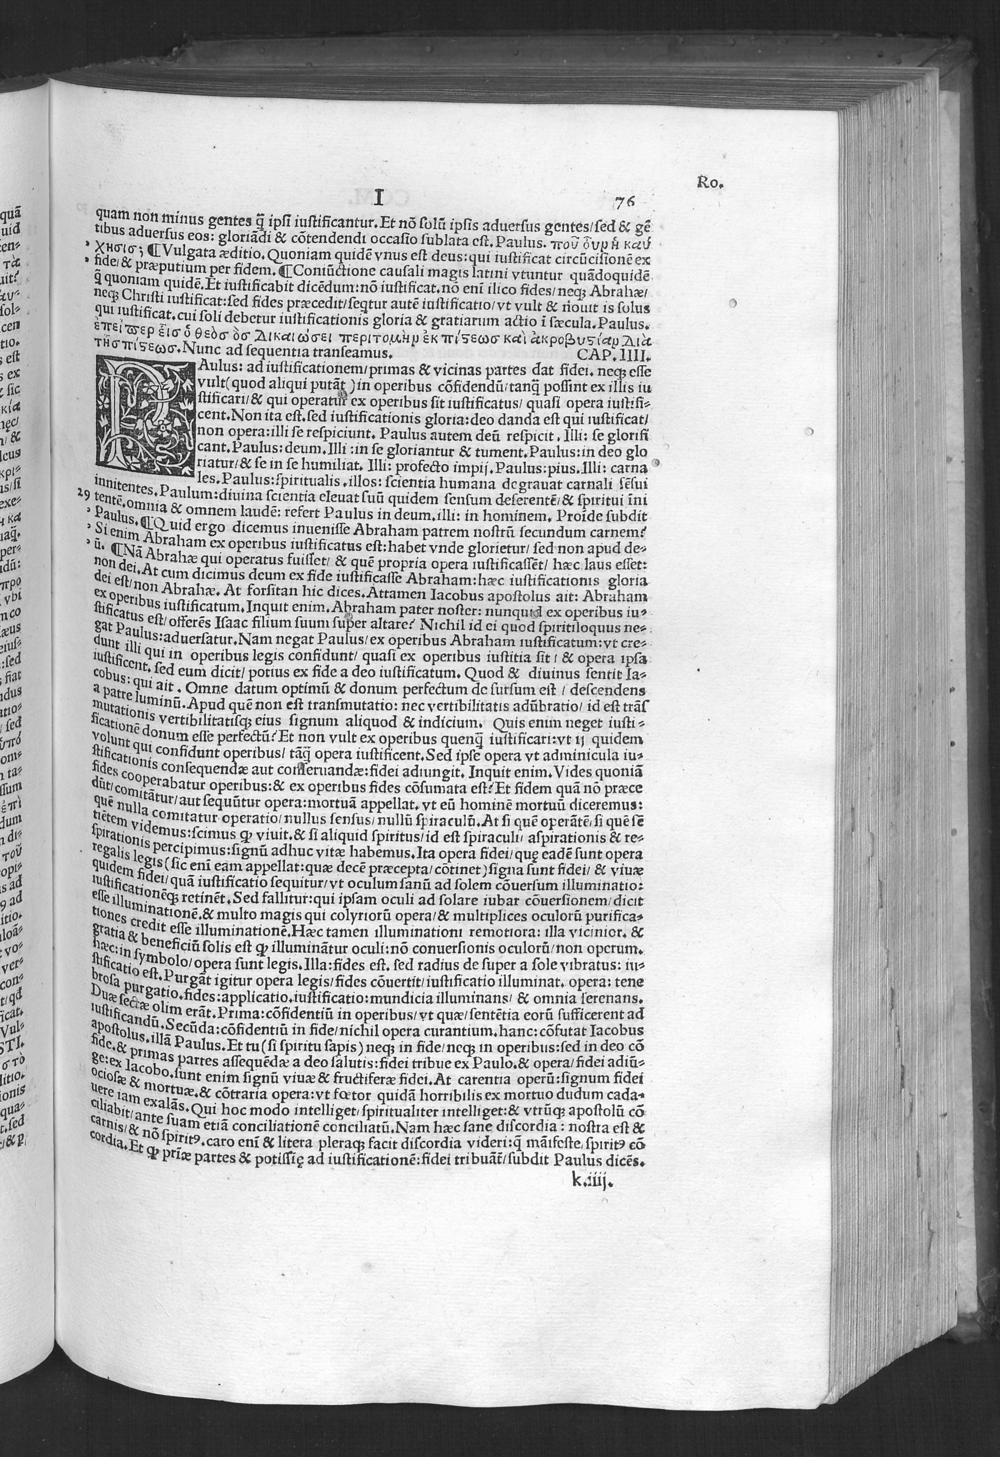 Ro.
I 76
quam non minus gentes q̃ ipſi iuſtificantur. Et nõ ſolũ ipſis aduerſus gentes/ſed & gẽ
tibus aduerſus eos: gloriãdi & cõtendendi occaſio ſublata eſt. Paulus. ποῦ ὂυν ἡ καύ
χησισ; ¶ Vulgata æditio. Quoniam quidẽ vnus eſt deus: qui iuſtificat circũciſionẽ ex
fide/& præputium per fidem. ¶ Coniũctione cauſali magis latini vtuntur quãdoquidẽ
q̃ quoniam quidẽ. Et iuſtificabit dicẽdum: nõ iuſtificat. nõ enĩ ilico fides/neqꝫ Abrahæ/
neqꝫ Chriſti iuſtificat: ſed fides præcedit/ſeqtur autẽ iuſtificatio/vt vult & nouit is ſolus
qui iuſtificat. cui ſoli debetur iuſtificationis gloria & gratiarum actio ĩ ſæcula. Paulus.
ἐπείπερ ἐισ ὁ θεὸσ ὃσ δικαιώσει περιτομὴν ἐκ πίςεωσ καὶ ἀκροβυςίαν διὰ
τῆσ πίςεωσ. Nunc ad ſequentia tranſeamus. CAP. IIII.
PAulus: ad iuſtificationem/primas & vicinas partes dat fidei. neqꝫ eſſe
vult(quod aliqui putãt )in operibus cõfidendũ/tanq̃ poſſint ex illis iu
ſtificari/& qui operatur ex operibus ſit iuſtificatus/ quaſi opera iuſtifi⸗
cent. Non ita eſt. ſed iuſtificationis gloria: deo danda eſt qui iuſtificat/
non opera: illi ſe reſpiciunt. Paulus autem deũ reſpicit. Illi: ſe glorifi
cant. Paulus: deum. Illi: in ſe gloriantur & tument. Paulus: in deo glo
riatur/& ſe in ſe humiliat. Illi: profecto impij. Paulus: pius. Illi: carna
les. Paulus: ſpiritualis. illos: ſcientia humana degrauat carnali ſẽſui
innitentes. Paulum: diuina ſcientia eleuat ſuũ quidem ſenſum deſerentẽ/& ſpiritui ĩni
29 tentẽ. omnia & omnem laudẽ: refert Paulus in deum. illi: in hominem. Proĩde ſubdit
Paulus. ¶ Quid ergo dicemus inueniſſe Abraham patrem noſtrũ ſecundum carnem?
Si enim Abraham ex operibus iuſtificatus eſt: habet vnde glorietur/ ſed non apud de⸗
ũ. ¶ Nã Abrahæ qui operatus fuiſſet/ & quẽ propria opera iuſtificaſſẽt/ hæc laus eſſet:
non dei. At cum dicimus deum ex fide iuſtificaſſe Abraham: hæc iuſtificationis gloria
dei eſt/non Abrahæ. At forſitan hic dices. Attamen Iacobus apoſtolus ait: Abraham
ex operibus iuſtificatum. Inquit enim. Abraham pater noſter: nunquid ex operibus iu⸗
ſtificatus eſt/offerẽs Iſaac filium ſuum ſuper altare? Nichil id ei quod ſpiritiloquus ne⸗
gat Paulus: aduerſatur. Nam negat Paulus/ex operibus Abraham iuſtificatum: vt cre⸗
dunt illi qui in operibus legis confidunt/ quaſi ex operibus iuſtitia ſit/ & opera ipſa
iuſtificent. ſed eum dicit/ potius ex fide a deo iuſtificatum. Quod & diuinus ſentit Ia⸗
cobus: qui ait. Omne datum optimũ & donum perfectum de ſurſum eſt / deſcendens
a patre luminũ. Apud quẽ non eſt tranſmutatio: nec vertibilitatis adũbratio/ id eſt trãſ
mutationis vertibilitatiſqꝫ eius ſignum aliquod & indicium. Quis enim neget iuſti⸗
ficationẽ donum eſſe perfectũ? Et non vult ex operibus quenq̃ iuſtificari: vt ij quidem
volunt qui confidunt operibus/ tãq̃ opera iuſtificent. Sed ipſe opera vt adminicula iu⸗
ſtificationis conſequendæ aut conſeruandæ: fidei adiungit. Inquit enim. Vides quoniã
fides cooperabatur operibus: & ex operibus fides cõſumata eſt? Et fidem quã nõ præce
dũt/comitãtur/aut ſequũtur opera: mortuã appellat. vt eũ hominẽ mortuũ diceremus:
quẽ nulla comitatur operatio/nullus ſenſus/nullũ ſpiraculũ. At ſi quẽ operãtẽ/ſi quẽ ſẽ
tiẽtem videmus: ſcimus qꝫ viuit. & ſi aliquid ſpiritus/id eſt ſpiraculi/aſpirationis & re⸗
ſpirationis percipimus: ſignũ adhuc vitæ habemus. Ita opera fidei/quę eadẽ ſunt opera
regalis legis (ſic enĩ eam appellat: quæ decẽ præcepta/cõtinet) ſigna ſunt fidei/& viuæ
quidem fidei/quã iuſtificatio ſequitur/vt oculum ſanũ ad ſolem cõuerſum illuminatio:
iuſtificationẽqꝫ retinẽt. Sed fallitur: qui ipſam oculi ad ſolare iubar cõuerſionem/dicit
eſſe illuminationẽ. & multo magis qui colyriorũ opera/& multiplices oculorũ purifica⸗
tiones credit eſſe illuminationẽ. Hæc tamen illuminationi remotiora: illa vicinior. &
gratia & beneficiũ ſolis eſt qꝫ illuminãtur oculi: nõ conuerſionis oculorũ/non operum.
hæc: in ſymbolo/opera ſunt legis. Illa: fides eſt. ſed radius de ſuper a ſole vibratus: iu⸗
ſtificatio eſt. Purgãt igitur opera legis/fides cõuertit/iuſtificatio illuminat. opera: tene
broſa purgatio. fides: applicatio. iuſtificatio: mundicia illuminans/ & omnia ſerenans.
Duæ ſectæ olim erãt. Prima: cõfidentiũ in operibus/vt quæ/ſentẽtia eorũ ſufficerent ad
iuſtificandũ. Secũda: cõfidentiũ in fide/nichil opera curantium. hanc: cõfutat Iacobus
apoſtolus. illã Paulus. Et tu(ſi ſpiritu ſapis) neqꝫ in fide/neqꝫ in operibus: ſed in deo cõ
fide. & primas partes aſſequẽdæ a deo ſalutis: fidei tribue ex Paulo. & opera/fidei adiũ⸗
ge: ex Iacobo. ſunt enim ſignũ viuæ & fructiferæ fidei. At carentia operũ: ſignum fidei
ocioſæ & mortuæ. & cõtraria opera: vt fœtor quidã horribilis ex mortuo dudum cada⸗
uere iam exalãs. Qui hoc modo intelliget/ſpiritualiter intelliget: & vtrũqꝫ apoſtolũ cõ
ciliabit/ante ſuam etiã conciliationẽ conciliatũ. Nam hæc ſane diſcordia: noſtra eſt &
carnis/& nõ ſpiritꝰ. caro enĩ & litera pleraqꝫ facit diſcordia videri: q̃ mãifeſte/ſpiritꝰ cõ
cordia. Et qꝫ prĩæ partes & potiſſię ad iuſtificationẽ: fidei tribuãt/ſubdit Paulus dicẽs.
k.iiij.